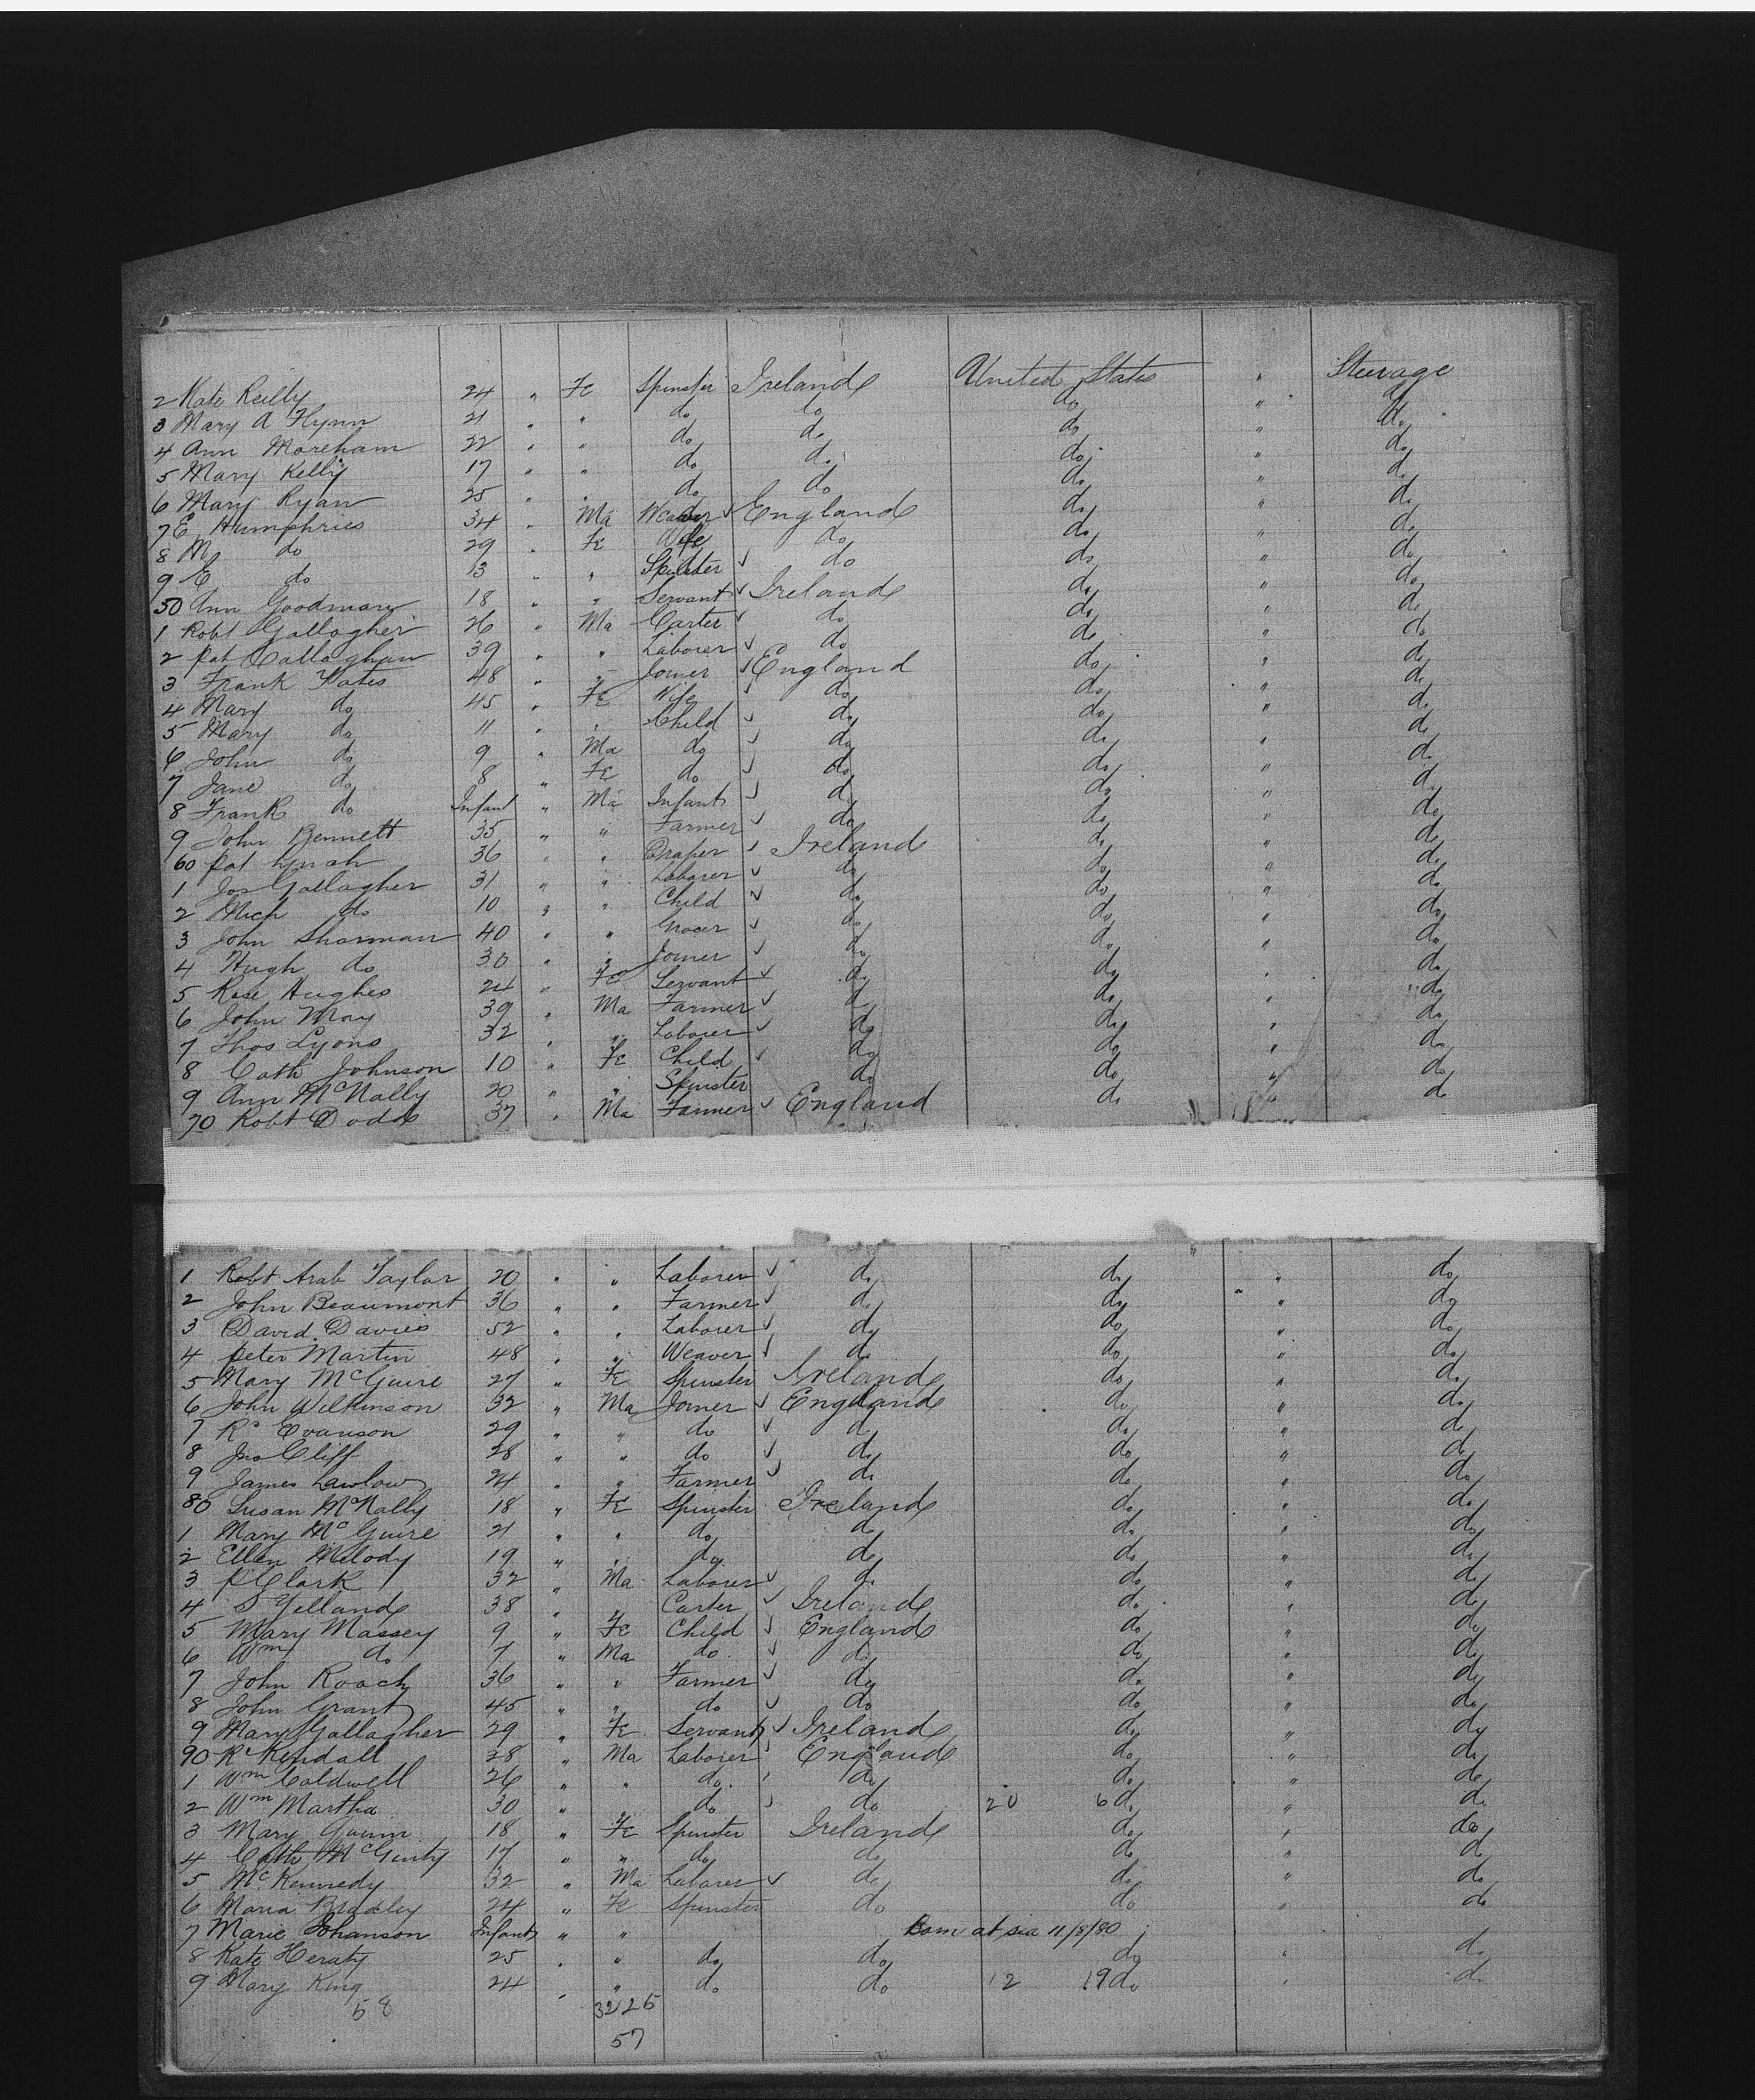 2 Kate Reilly 24 " Fe Spinster Ireland United States " Steerage
3 Mary A Flynn 21 " " do do do " do
4 Ann Moreham 22 " " do do do " do
5 Mary Kelly 17 " " do do do " do
6 Mary Ryan 25 " " do do do " do
7 E Humphries 34 " Ma Weaver ✓ England do " do
8 M do 29 " Fe Wife do do " do
9 E do 13 " " Spinster ✓ do do " do
50 Ann Goodman 18 " " Servant ✓ Ireland do " do
1 Robt Gallagher 26 " Ma Carter ✓ do do " do
2 Pat Callaghan 39 " " Laborer ✓ do do " do
3 Frank Yates 48 " " Joiner ✓ England do " do
4 Mary do 45 " Fe Wife ✓ do do " do
5 Mary do 11 " " Child ✓ do do " do
6 John do 9 " Ma do ✓ do do " do
7 Jane do 8 " Fe do ✓ do do " do
8 Frank do Infant " Ma Infant ✓ do do " do
9 John Bennett 35 " " Farmer ✓ do do " do
60 Pat Lynch 36 " " Draper ✓ Ireland do " do
1 Jos Gallagher 31 " " Laborer ✓ do do " do
2 Mich do 10 " " Child ✓ do do " do
3 John Sharman 40 " " Grocer ✓ do do " do
4 Hugh do 30 " " Joiner ✓ do do " do
5 Rose Hughes 24 " Fe Servant ✓ do do " do
6 John May 39 " Ma Farmer ✓ do do " do
7 Thos Lyons 32 " " Laborer ✓ do do " do
8 Cath Johnson 10 " Fe Child ✓ do do " do
9 Ann McNally 20 " " Spinster do do " do
70 Robt Dodd 37 " Ma Farmer ✓ England do " do
1 Robt Arab Taylor 20 " " Laborer ✓ do do " do
2 John Beaumont 36 " " Farmer ✓ do do " do
3 David Davies 52 " " Laborer ✓ do do " do
4 Peter Martin 48 " " Weaver ✓ do do " do
5 Mary McGuire 27 " Fe Spinster Ireland do " do
6 John Wilkinson 32 " Ma Joiner ✓ England do " do
7 Rd Evanson 29 " " do ✓ do do " do
8 Jno Cliff 28 " " do ✓ do do " do
9 James Lawlow 24 " " Farmer ✓ do do " do
80 Susan McNally 18 " Fe Spinster Ireland do " do
1 Mary McGuire 21 " " do do do " do
2 Ellen Melody 19 " " do do do " do
3 P Clark 32 " Ma Laborer ✓ do do " do
4 S Yelland 38 " " Carter ✓ Ireland do " do
5 Mary Massey 9 " Fe Child ✓ England do " do
6 Wm do 7 " Ma do ✓ do do " do
7 John Roach 36 " " Farmer ✓ do do " do
8 John Grant 45 " " do ✓ do do " do
9 Mary Gallagher 29 " Fe Servant ✓ Ireland do " do
90 R Kendall 28 " Ma Laborer ✓ England do " do
1 Wm Caldwell 26 " " do ✓ do do " do
2 Wm Martha 30 " do ✓ do 20 6 do " do
3 Mary Quinn 18 " Fe Spinster Ireland do " do
4 Cath McGinty 17 " " do do do " do
5 Mc Kennedy 32 " Ma Laborer ✓ do do " do
6 Maria Bradley 24 " Fe Spinster do do " do
7 Marie Johanson Infant " " born at sea 11/8/80
8 Kate Heraty 25 " " do do do " do
9 Mary King 24 " " do do 12 19 do " do
58 32 25
57